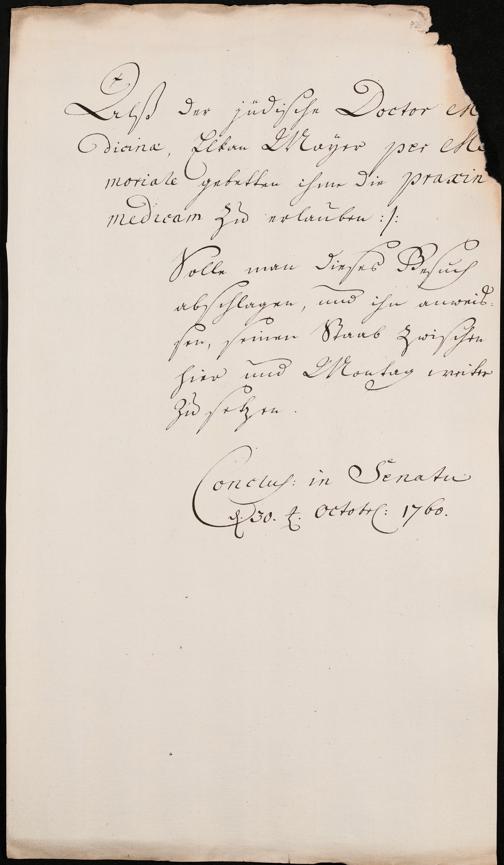 Alß der jüdische Doctor Me
dicinæ, Elkan Mayer per Me
moriale gebetten ihme die praxin
medicam zu erlauben :/:
Solle man dieses Gesuch
abschlagen, und ihn anweis-
sen, seinen Staab zwischen
hier und Montag weiter
zu setzen.
Conclus: in Senatu
d. 30. t. Octobr: 1760.